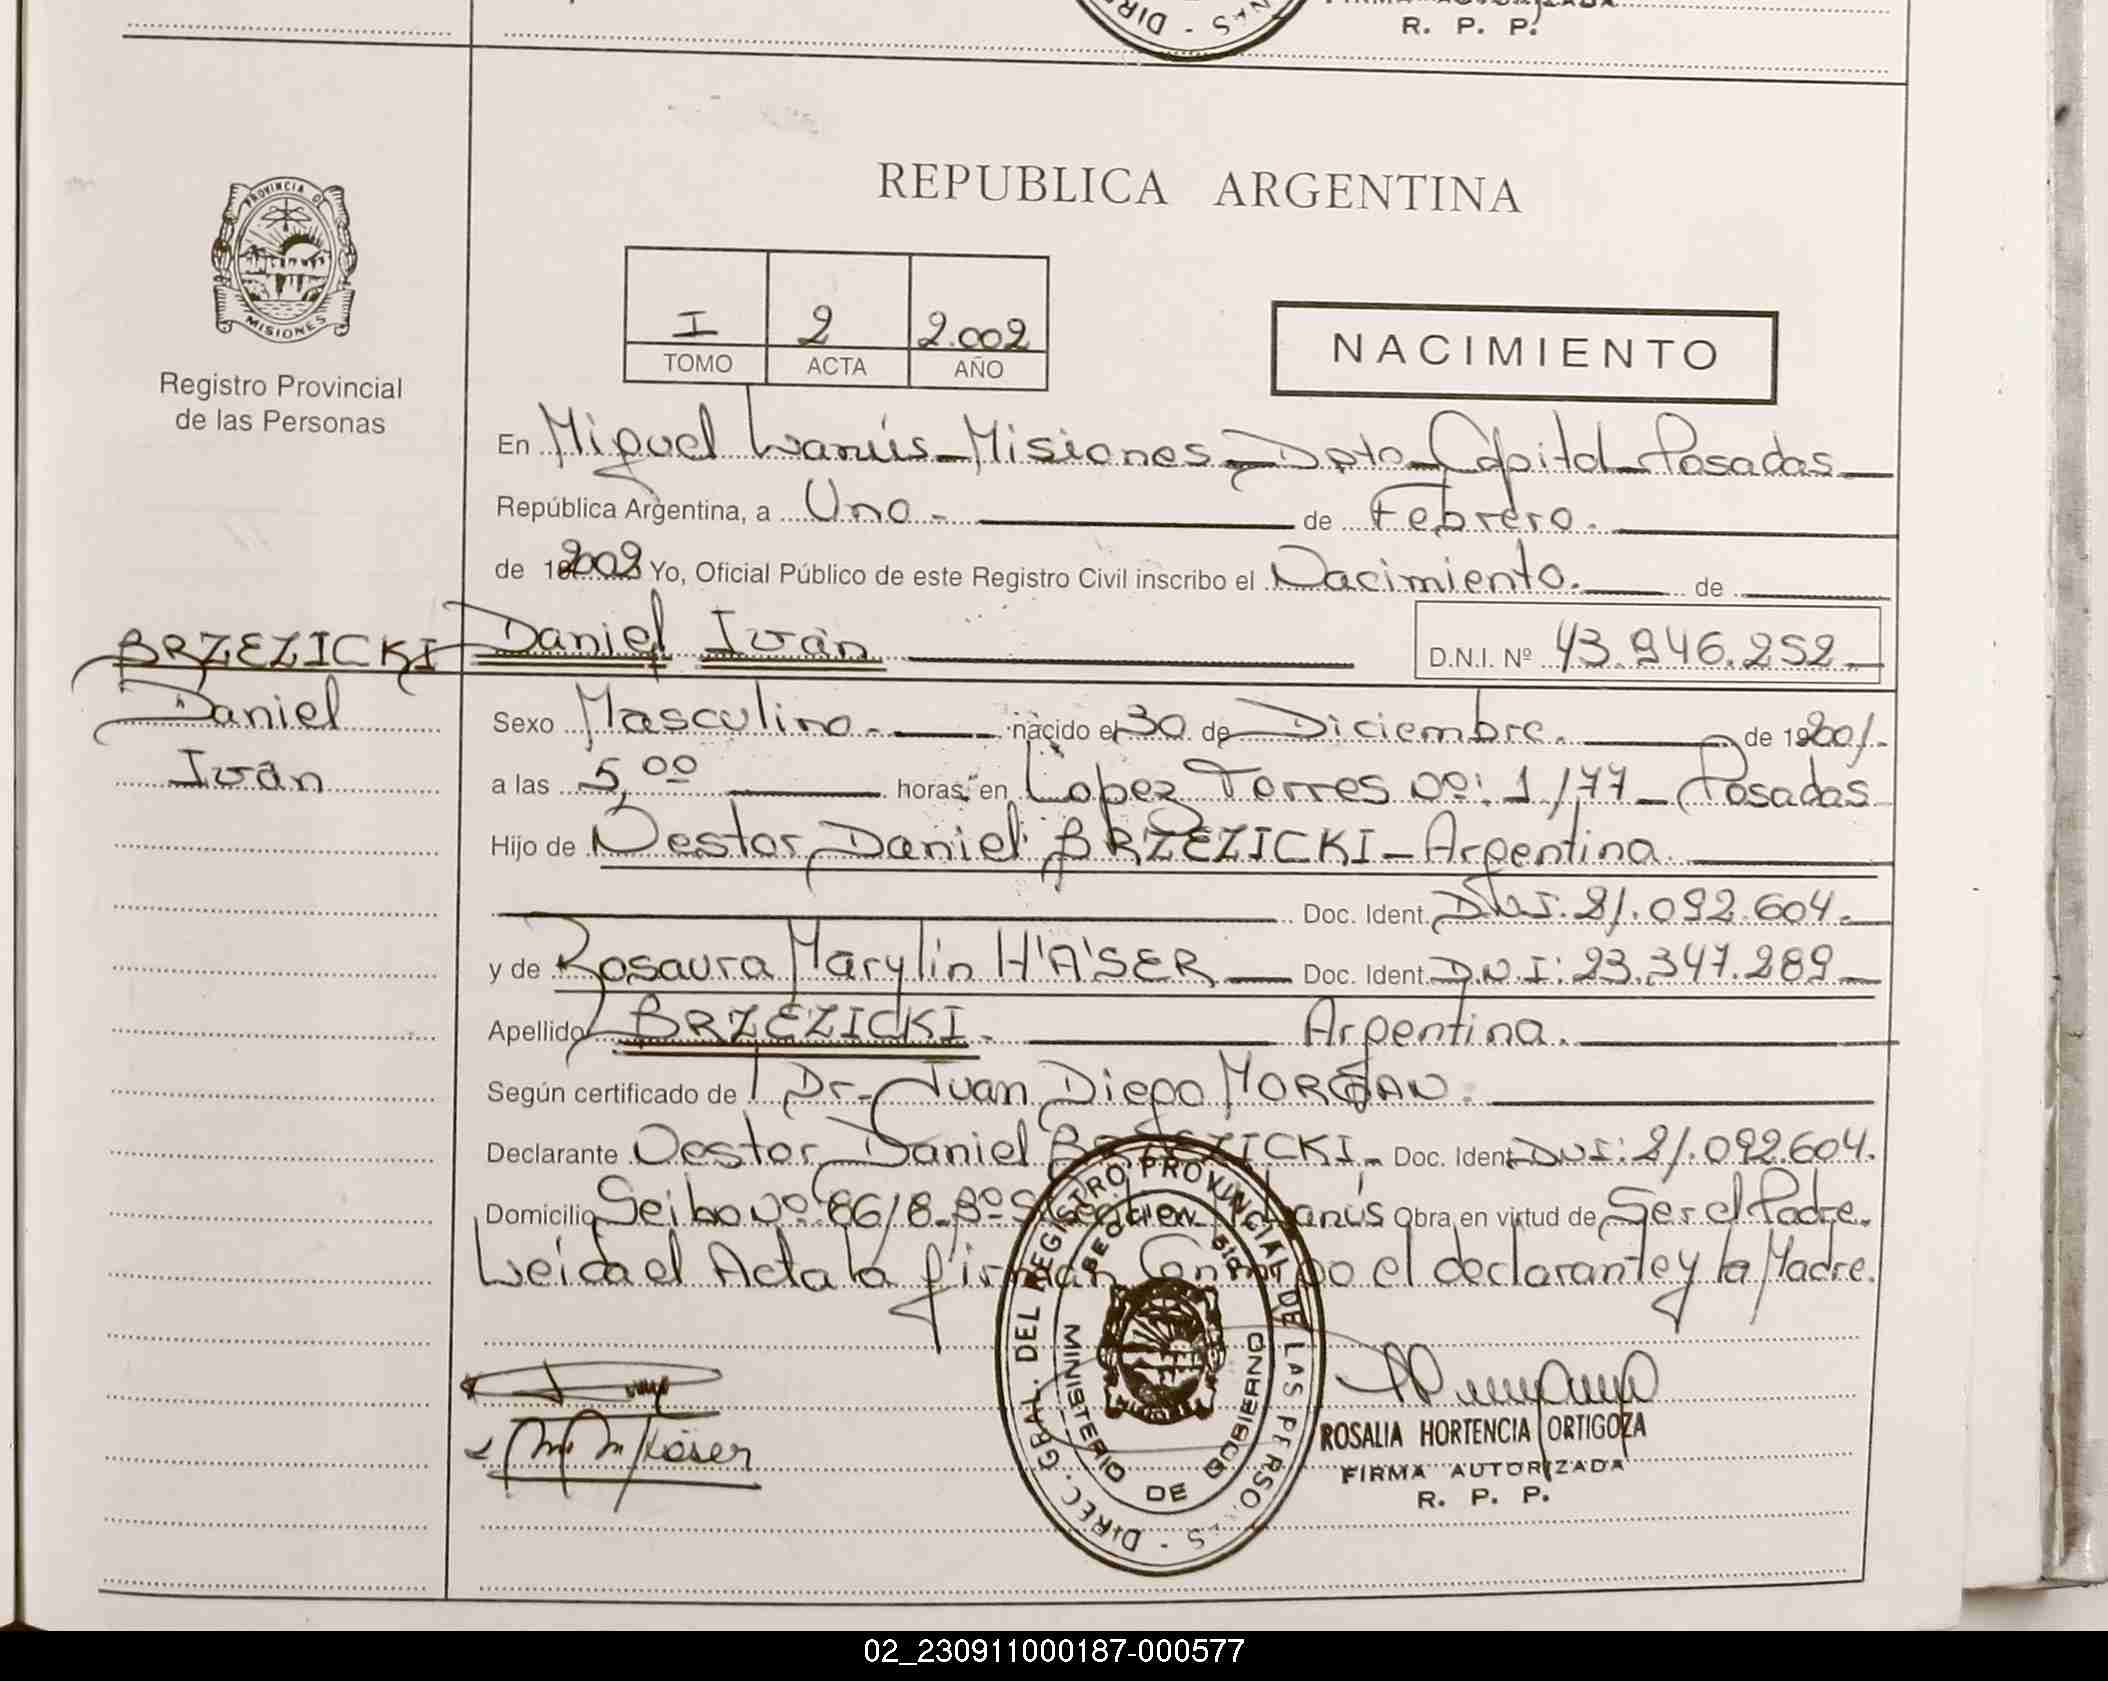 R. P. P.
PROVINCIA DE
MISIONES
Registro Provincial
de las Personas
REPUBLICA ARGENTINA
I 2 2.002
TOMO ACTA AÑO
NACIMIENTO
En Miguel Lanús - Misiones - Dpto - Capital - Posadas
República Argentina, a Uno - de Febrero.
de 2002 Yo, Oficial Público de este Registro Civil inscribo el Nacimiento. de
BRZEZICKI Daniel Iván D.N.I. Nº 43.946.252
Daniel
Iván
Sexo Masculino. - nacido el 30 de Diciembre. de 2001.-
a las 5,00 horas, en López Torres Nº: 1177 - Posadas
Hijo de Nestor Daniel BRZEZICKI - Argentina.
Doc. Ident. D.N.I. 21.092.604.
y de Rosaura Marylin H'A'SER Doc. Ident. D.N.I: 23.347.289
Apellido BRZEZICKI. Argentina.
Según certificado de Dr. Juan Diego MORGAN.
Declarante Nestor Daniel BRZEZICKI. Doc. Ident. DNI: 21.092.604.
Domicilio Seibo Nº 6618 - Bº Lanús Obra en virtud de Ser el Padre.
Leida el Acta la firman Conmigo el declarante y la Madre.
Häser
DIREC. GRAL. DEL REGISTRO PROVINCIAL DE LAS PERSONAS
MINISTERIO DE GOBIERNO
ROSALIA HORTENCIA ORTIGOZA
FIRMA AUTORIZADA
R. P. P.
02_230911000187-000577